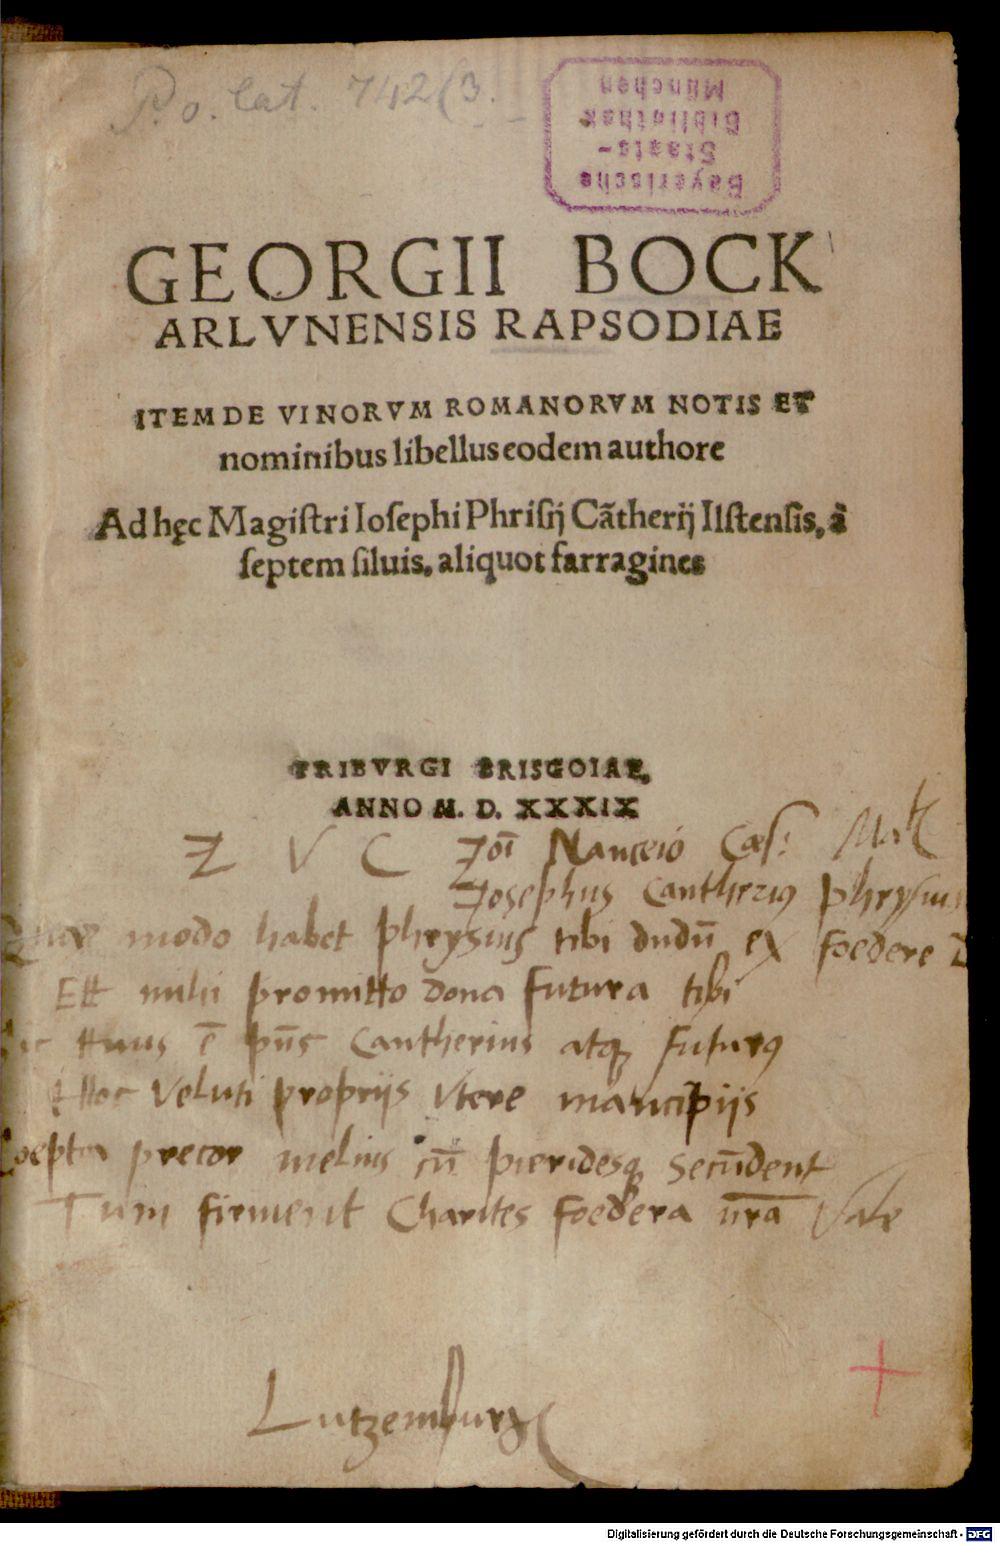 P. o. lat. 742(3.
Bayerische
Staats-
Bibliothek
München
GEORGII BOCK
ARLVNENSIS RAPSODIAE
ITEM DE VINORVM ROMANORVM NOTIS ET
nominibus libellus eodem authore
Ad hęc Magiſtri Ioſephi Phriſij Cãtherij Ilſtenſis, à
ſeptem ſiluis, aliquot farragines
FRIBVRGI BRISGOIAE,
ANNO M. D. XXXIX
Z V C Joī Nanceio Cæſ: Mat
Josephus Cantheriꝰ phrysius
Quae modo habet phrysius tibi dudū ex foedere
Et mihi promitto dona futura tibi
Sic tuus ē pūs Cantherius atqꝫ futurꝰ
Hoc veluti proprijs vtere mancipijs
Coepta precor melius cū pieridesqꝫ secūdent
Tum firment Charites foedera nr̄a Vale
Lutzemburg
Digitalisierung gefördert durch die Deutsche Forschungsgemeinschaft - DFG